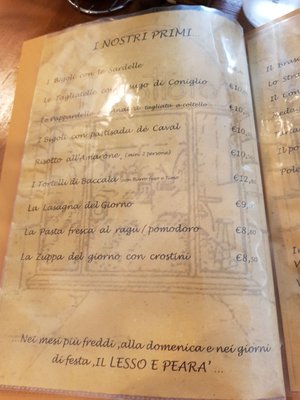 I NOSTRI PRIMI...
I Bigoli con le Sardelle
Le Tagliatelle con sugo di Coniglio €10,
Le Pappardelle Anatra tagliata a coltello €10,
I Bigoli con pastisada de Caval €10,
Risotto all'Amarone (min 2 persone) €10,
I Tortelli di Baccalà con Burro fuso e Timo €12,
La Lasagna del Giorno €9,
La Pasta fresca al ragù/pomodoro €8,50
La Zuppa del giorno con crostini €8,50
...Nei mesi più freddi ,alla domenica e nei giorni
di festa ,IL LESSO E PEARA' ...
Il Bras
Lo Str
Il Con
Il po
Pole